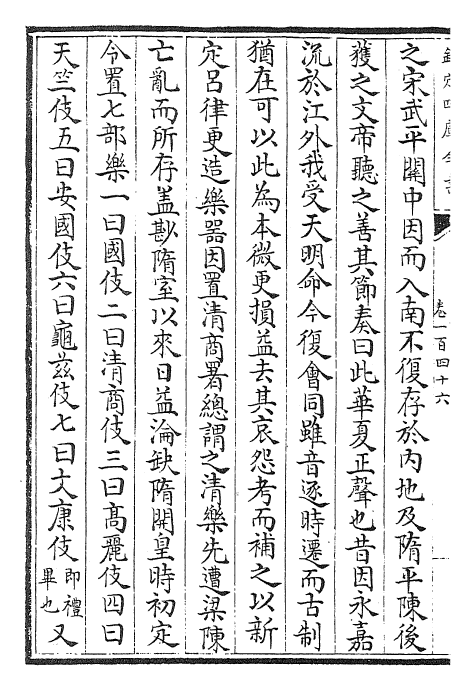 欽定四庫全書
卷一百四十六
之宋武平關中因而入南不復存於内地及隋平陳後
獲之文帝聽之善其節奏曰此華夏正聲也昔因永嘉
流於江外我受天明命今復會同雖音逐時遷而古制
猶在可以此為本微更損益去其哀怨考而補之以新
定吕律更造樂器因置清商署總謂之清樂先遭梁陳
亡亂而所存盖尠隋室以來日益淪缺隋開皇時初定
令置七部樂一曰國伎二曰清商伎三曰髙麗伎四曰
天竺伎五曰安國伎六曰龜兹伎七曰文康伎即禮畢也又